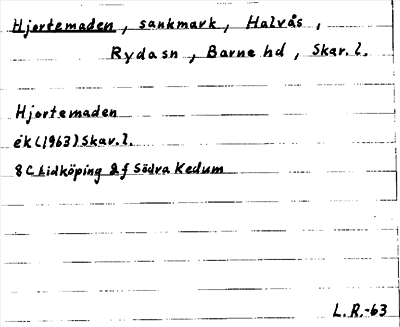 Hjortemaden, sankmark, Halvås,
Ryda sn, Barne hd, Skar. l.
Hjortemaden
ek (1963) Skar. l.
8 C Lidköping 2 f Södra Kedum
L. R. -63